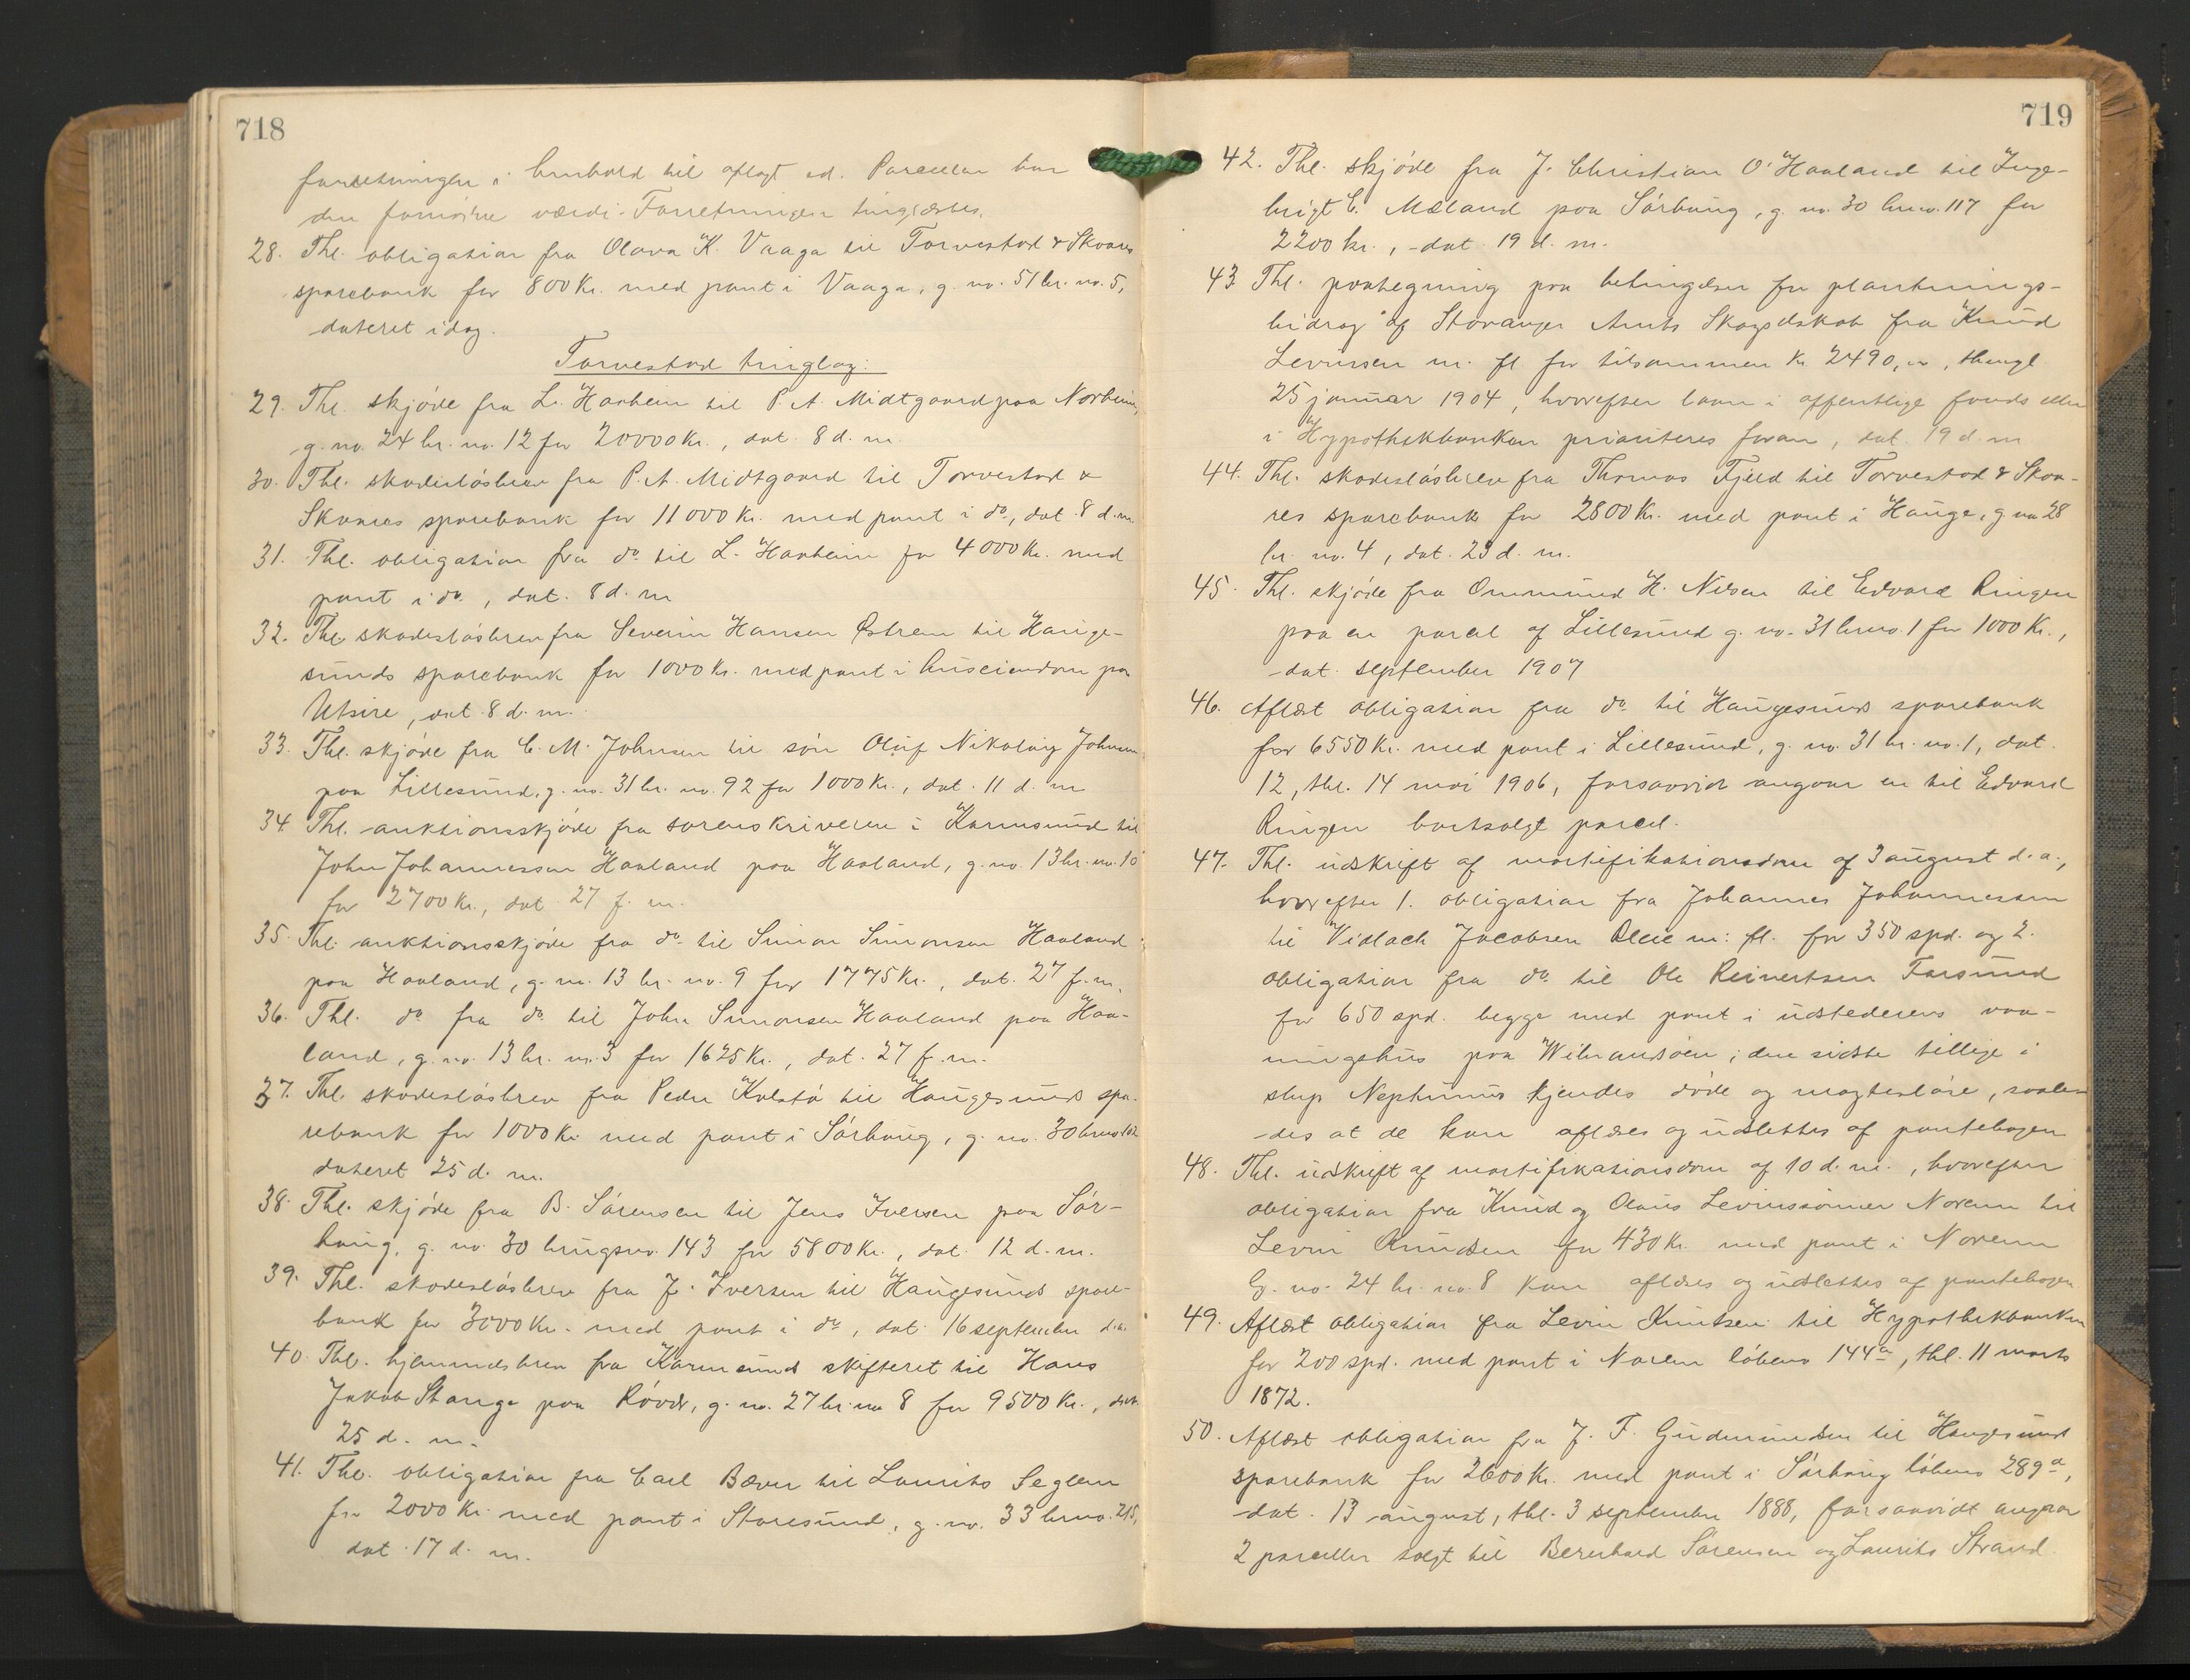 718
forretningen i henhold til aflagt ed. Parcellen har
den fornødne værdi. Forretningen tinglæstes.
28. Thl. obligation fra Olava K. Vaaga til Torvestad & Skaares
sparebank for 800 Kr. med pant i Vaaga, g. no. 51 br. no. 5,
dateret idag.
Torvestad tinglag:
29. Thl. skjøde fra L. Hanheim til P. A. Midtgaard paa Norheim,
g. no. 24 br. no. 12 for 20000 Kr., dat. 8 d. m.
30. Thl. skadesløsbrev fra P. A. Midtgaard til Torvestad &
Skaares sparebank for 11000 Kr. med pant i do, dat. 8 d. m.
31. Thl. obligation fra do til L. Hanheim for 4000 Kr. med
pant i do, dat. 8 d. m
32. Thl. skadesløsbrev fra Severin Hansen Østrem til Hauge-
sunds sparebank for 1000 Kr. med pant i huseiendom paa
Utsire, dat. 8 d. m.
33. Thl. skjøde fra C. M. Johnsen til søn Oluf Nikolay Johnsen
paa Lillesund, g. no. 31 br. no. 92 for 1000 Kr., dat. 11 d. m
34. Thl. auktionsskjøde fra sorenskriveren i Karmsund til
John Johannessen Haaland paa Haaland, g. no. 13 br. no. 10
for 2700 Kr., dat. 27 f. m.
35. Thl. auktionsskjøde fra do til Simon Simonsen Haaland
paa Haaland, g. no. 13 br. no. 9 for 1775 Kr., dat. 27 f. m.
36. Thl. do fra do til John Simonsen Haaland paa Haa-
land, g. no. 13 br. no. 3 for 1625 Kr., dat. 27 f. m.
37. Thl. skadesløsbrev fra Peder Kolstø til Haugesunds spa-
rebank for 1000 Kr. med pant i Sørhaug, g. no. 30 brno
dateret 25 d. m.
38. Thl. skjøde fra B. Sørensen til Jens Iversen paa Sør-
haug, g. no. 30 brugsno. 143 for 5800 Kr., dat. 12 d. m.
39. Thl. skadesløsbrev fra J. Iversen til Haugesunds spare-
bank for 3000 Kr. med pant i do, dat. 16 september d. a.
40. Thl. hjemmelsbrev fra Karmsunds skifteret til Hans
Jakob Stange paa Røvær, g. no. 27 br. no 8 for 9500 Kr., dat.
25 d. m.
41. Thl. obligation fra Carl Bæver til Laurits Seglem
for 2000 Kr. med pant i Storesund, g. no. 33 brno. 215,
dat. 17 d. m.
719
42. Thl. skjøde fra J. Christian O. Haaland til Inge-
brigt C. Mæland paa Sørhaug, g. no. 30 brno. 117 for
2200 kr., dat. 19 d. m.
43. Thl. paategning paa betingelser for plantnings-
bidrag af Stavanger Amts Skogselskab fra Knud
Levinsen m. fl for tilsammen Kr. 2490, thingl.
25 januar 1904, hvorefter laan i offentlige fonds eller
i Hypothekbanken prioriteres foran, dat. 19 d. m
44. Thl. skadesløsbrev fra Thomas Fjeld til Torvestad & Skaa-
res sparebank for 2800 Kr. med pant i Hauge, g no 28
br. no. 4, dat. 23 d. m.
45. Thl. skjøde fra Ommund H. Nilsen til Edvard Ringen
paa en parcel af Lillesund g. no. 31 brno. 1 for 1000 Kr.,
dat. september 1907
46. Aflæst obligation fra do til Haugesunds sparebank
for 6550 Kr. med pant i Lillesund, g. no. 31 br. no. 1, dat.
12, thl. 14 mai 1906, forsaavidt angaar en til Edvard
Ringen bortsolgt parcel.
47. Thl. udskrift af mortifikationsdom af 3 august d. a.,
hvorefter 1. obligation fra Johannes Johannessen
til Vidlach Jacobsen Bleie m: fl. for 350 spd. og 2.
obligation fra do til Ole Reinertsen Farsund
for 650 spd. begge med pant i udstederens vaa-
ningshus paa Wibrandsøen; den sidste tillige i
slup Neptunus kjendes døde og magtesløse, saale
des at de kan aflæses og udslettes af pantebogen
48. Thl. udskrift af mortifikationsdom af 10 d. m., hvorefter
obligation fra Knud og Olaus Levinssønner Norem til
Levin Knudsen for 430 Kr. med pant i Norem
G. no. 24 br. no. 8 kan aflæses og udslettes af pantebogen
49. Aflæst obligation fra Levin Knutsen til Hypothekbanken
for 200 spd. med pant i Norem løbeno 144a, thl. 11 marts
1872.
50. Aflæst obligation fra J. T. Gudmundsen til Haugesunds
sparebank for 2600 Kr. med pant i Sørhaug løbeno 289a,
dat. 13 august, thl. 3 september 1888, forsaavidt angaar
2 parceller solgt til Bernhard Sørensen og Laurits Strand